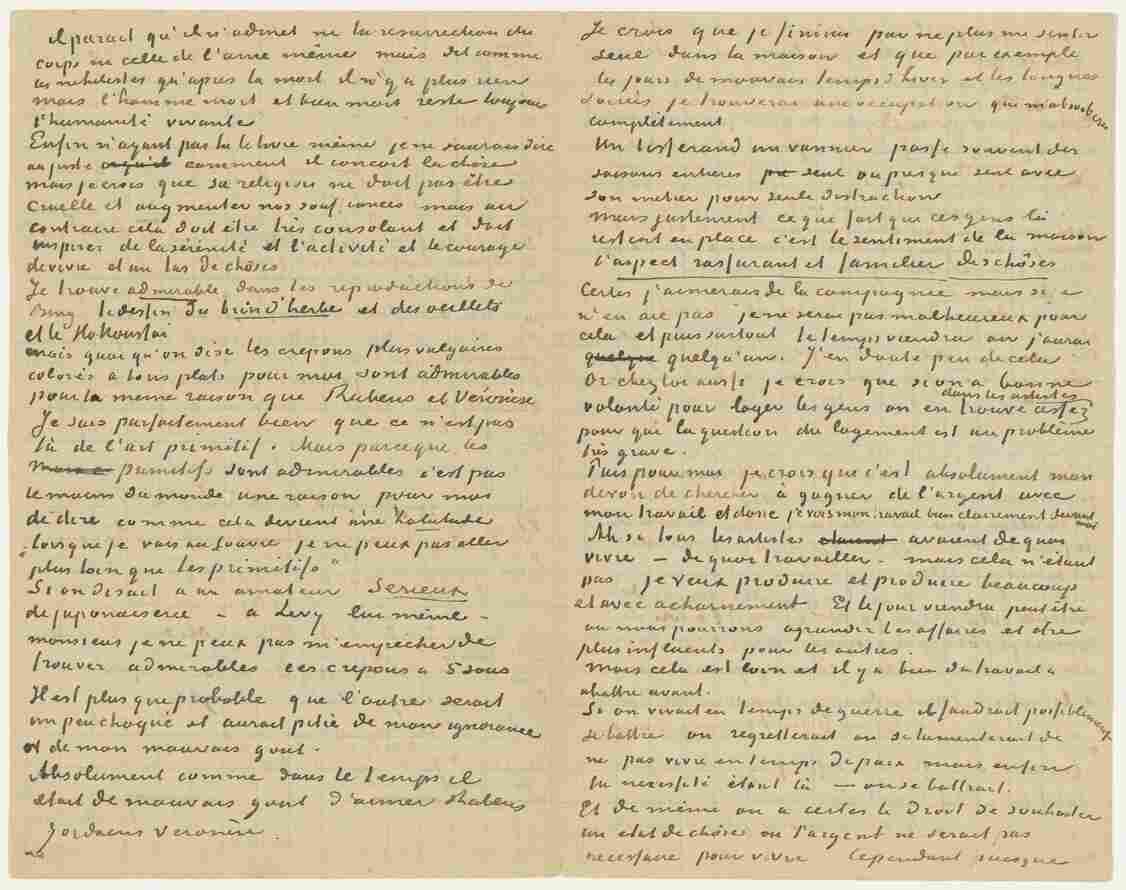 il parait qu'il n'admet ni la resurrection du
corps ni celle de l'ame même mais dit comme
les nihilistes qu'après la mort il n'y a plus rien
mais l'homme mort et bien mort reste toujours
l'humanité vivante
Enfin n'ayant pas lu le livre même je ne saurais dire
au juste comment il concoit la chôse
mais je crois que sa religion ne doit pas être
cruelle et augmenter nos souffrances mais au
contraire cela doit être très consolant et doit
inspirer de la sérénité et l'activité et le courage
de vivre et un tas de chôses
Je trouve admirable dans les reproductions de
Bing le dessin du brin d'herbe et des oeillets
et le Hokousaï
mais quoi qu'on dise les crepons plus vulgaires
colorés à tons plats pour moi sont admirables
pour la même raison que Rubens et Véronèse
Je sais parfaitement bien que ce n'est pas
là de l'art primitif. Mais parceque les
primitifs sont admirables c'est pas
le moins du monde une raison pour moi
de dire comme cela devient une habitude
"lorsque je vais au Louvre je ne peux pas aller
plus loin que les primitifs"
Si on disait à un amateur serieux
de japonaiserie – à Levy lui même –
monsieur je ne peux pas m'empecher de
trouver admirables ces crepons à 5 sous
Il est plus que probable que l'autre serait
un peu choqué et aurait pitié de mon ignorance
et de mon mauvais gout.
Absolument comme dans le temps il
etait de mauvais gout d'aimer Rubens
Jordaens Veronèse.
Je crois que je finirai par ne plus me sentir
seul dans la maison et que par exemple
les jours de mauvais temps d'hiver et les longues
soirées je trouverai une occupation qui m'absorbera
complètement
Un tisserand un vannier passe souvent des
saisons entieres seul ou presque seul avec
son metier pour seule distraction
mais justement ce qui fait que ces gens là
restent en place c'est le sentiment de la maison
l'aspect rassurant et familier des chôses
Certes j'aimerais de la compagnie mais si je
n'en aie pas je ne serai pas malheureux pour
cela et puis surtout le temps viendra où j'aurai
quelque quelqu'un. J'en doute peu de cela
Or chez toi aussi je crois que si on a bonne
volonté pour loger les gens on en trouve assez dans les artistes
pour qui la question du logement est un problème
très grave.
Puis pour moi je crois que c'est absolument mon
devoir de chercher à gagner de l'argent avec
mon travail et donc je vois mon travail bien clairement devant moi
Ah si tous les artistes etaient avaient de quoi
vivre – de quoi travailler – mais cela n'étant
pas je veux produire et produire beaucoup
et avec acharnement Et le jour viendra peut être
où nous pourrons agrandir les affaires et être
plus influents pour les autres.
Mais cela est loin et il y a bien du travail à
abattre avant.
Si on vivait en temps de guerre il faudrait possiblement
se battre on regretterait on se lamenterait de
ne pas vivre en temps de paix mais enfin
la necessité étant là – on se battrait.
Et de même on a certes le droit de souhaiter
un etat de chôses où l'argent ne serait pas
necessaire pour vivre Cependant puisque